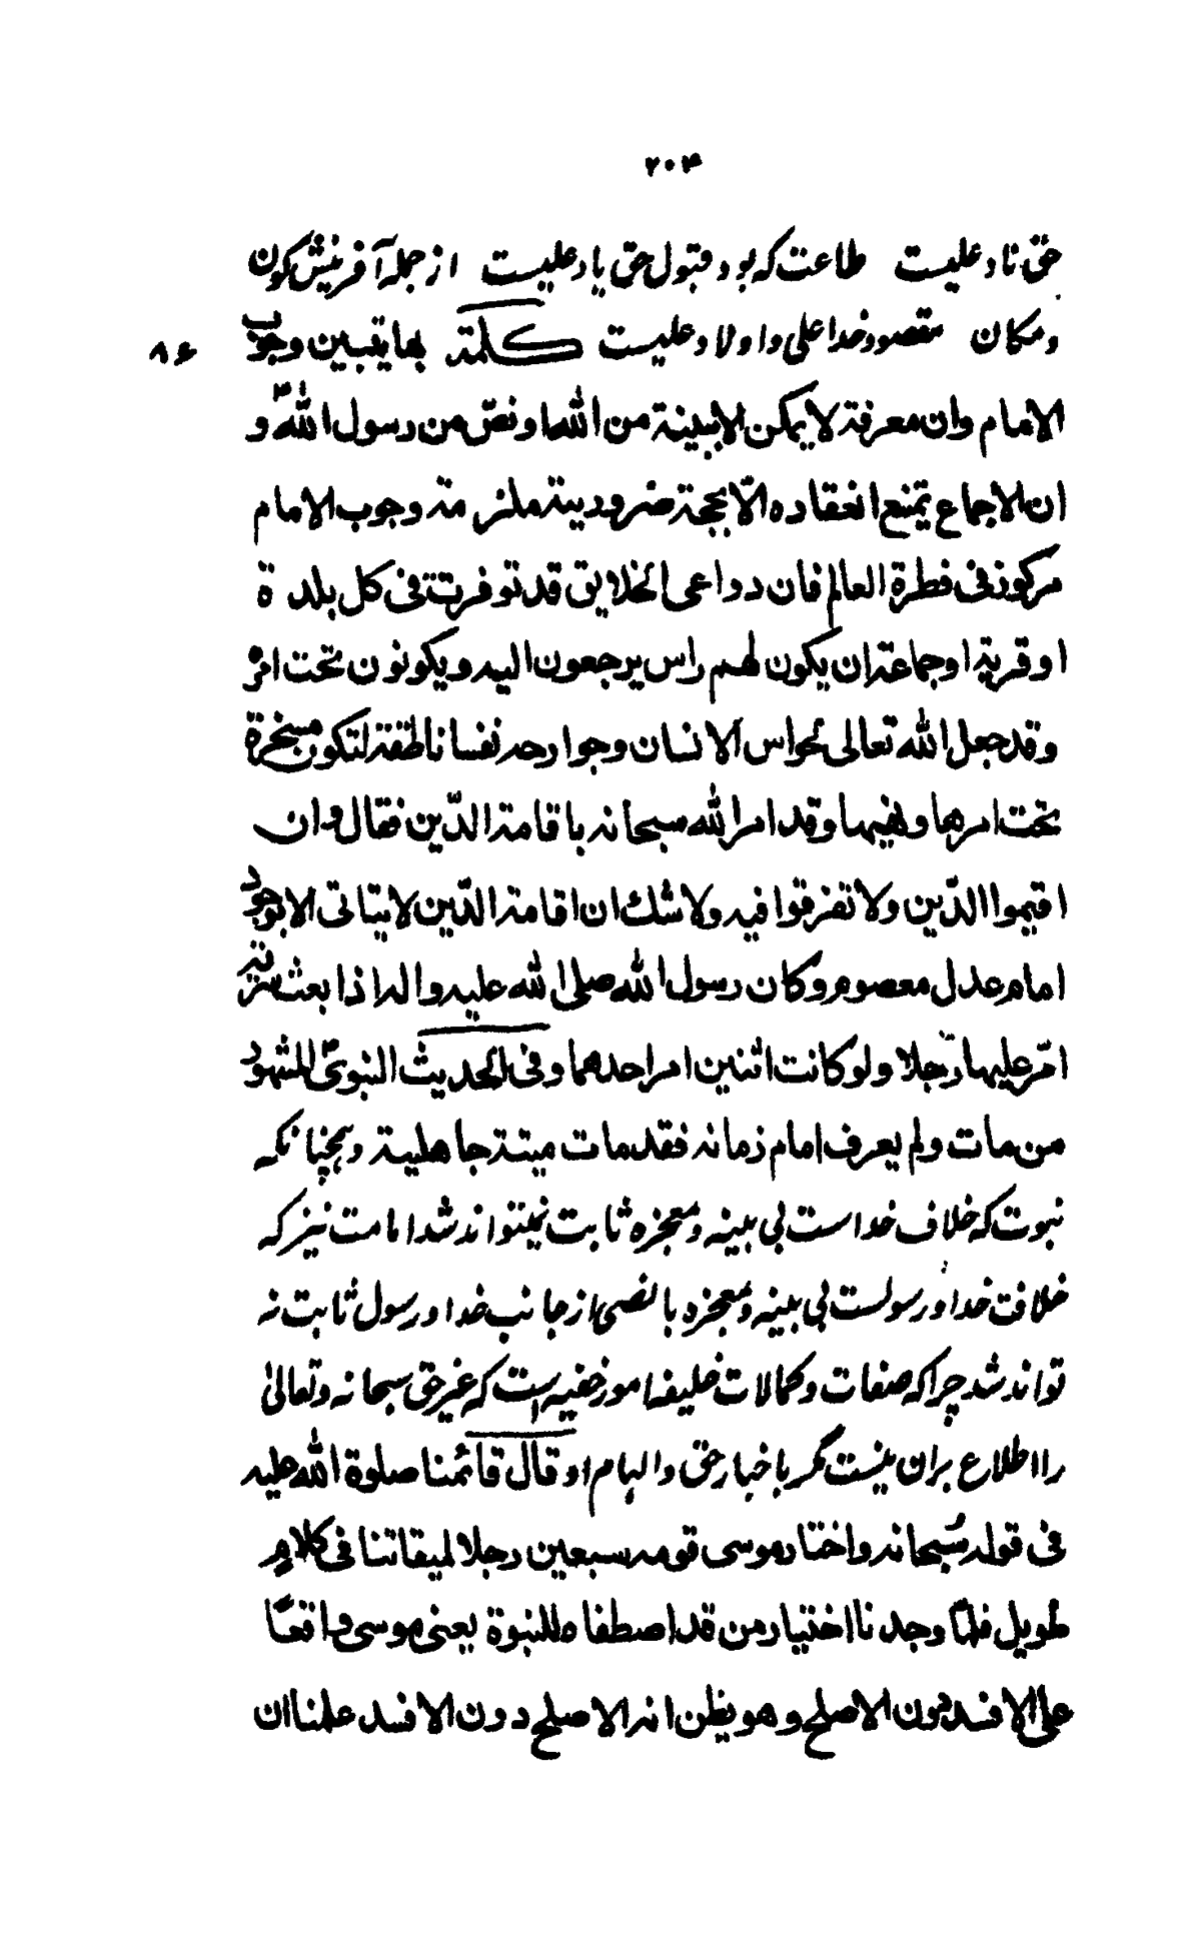 ۲۰۴
حق ناد علیست طاعت که بود قبول حق یاد علیست از جمله آفرینش کون
و مکان مقصود خدا علی و اولاد علیست کلمة بها یتبین وجوب ۸۶
الامام وان معرفة لا یمکن الا ببینة من الله او نص من رسول الله ص و
ان الاجماع یمتنع انعقاده الّا بحجة ضروریة ملزمة وجوب الامام
مرکوز فی فطرة العالم فان دواعی الخلایق قد توفرت فی کل بلدة
او قریة او جماعة ان یکون لهم راس یرجعون الیه و یکونون تحت امره
وقد جعل الله تعالی لحواس الانسان وجوارحه نفسا ناطقة لتکون مسخرة
تحت امرها و نهیها وقد امر الله سبحانه باقامة الدّین فقال وان
اقیموا الدّین ولا تفرقوا فیه ولا شک ان اقامة الدّین لا یتاتی الا بوجود
امام عدل معصوم وکان رسول الله صلی الله علیه واله اذا بعث سریة
امّر علیها رجلا ولو کانت اثنین امر احدهما وفی الحدیث النبوی المشهور
من مات ولم یعرف امام زمانه فقد مات میتة جاهلیة و همچنانکه
نبوت که خلاف خداست بی بینه و معجزه ثابت نمیتواند شد امامت نیز که
خلافت خدا و رسولست بی بینه و معجزه یا نصی از جانب خدا و رسول ثابت نه
تواند شد چرا که صفات و کمالات خلیفه امور خفیه است که غیر حق سبحانه و تعالی
را اطلاع بران نیست مگر باخبار حق و الهام او قال قائمنا صلوة الله علیه
فی قوله سُبحانه واختار موسی قومه سبعین رجلا لمیقاتنا فی کلام
طویل فلمّا وجدنا اختیار من قد اصطفاه للنبوة یعنی موسی واقعًا
علی الافسد دون الاصلح و هو یظن انه الاصلح دون الافسد علمنا ان